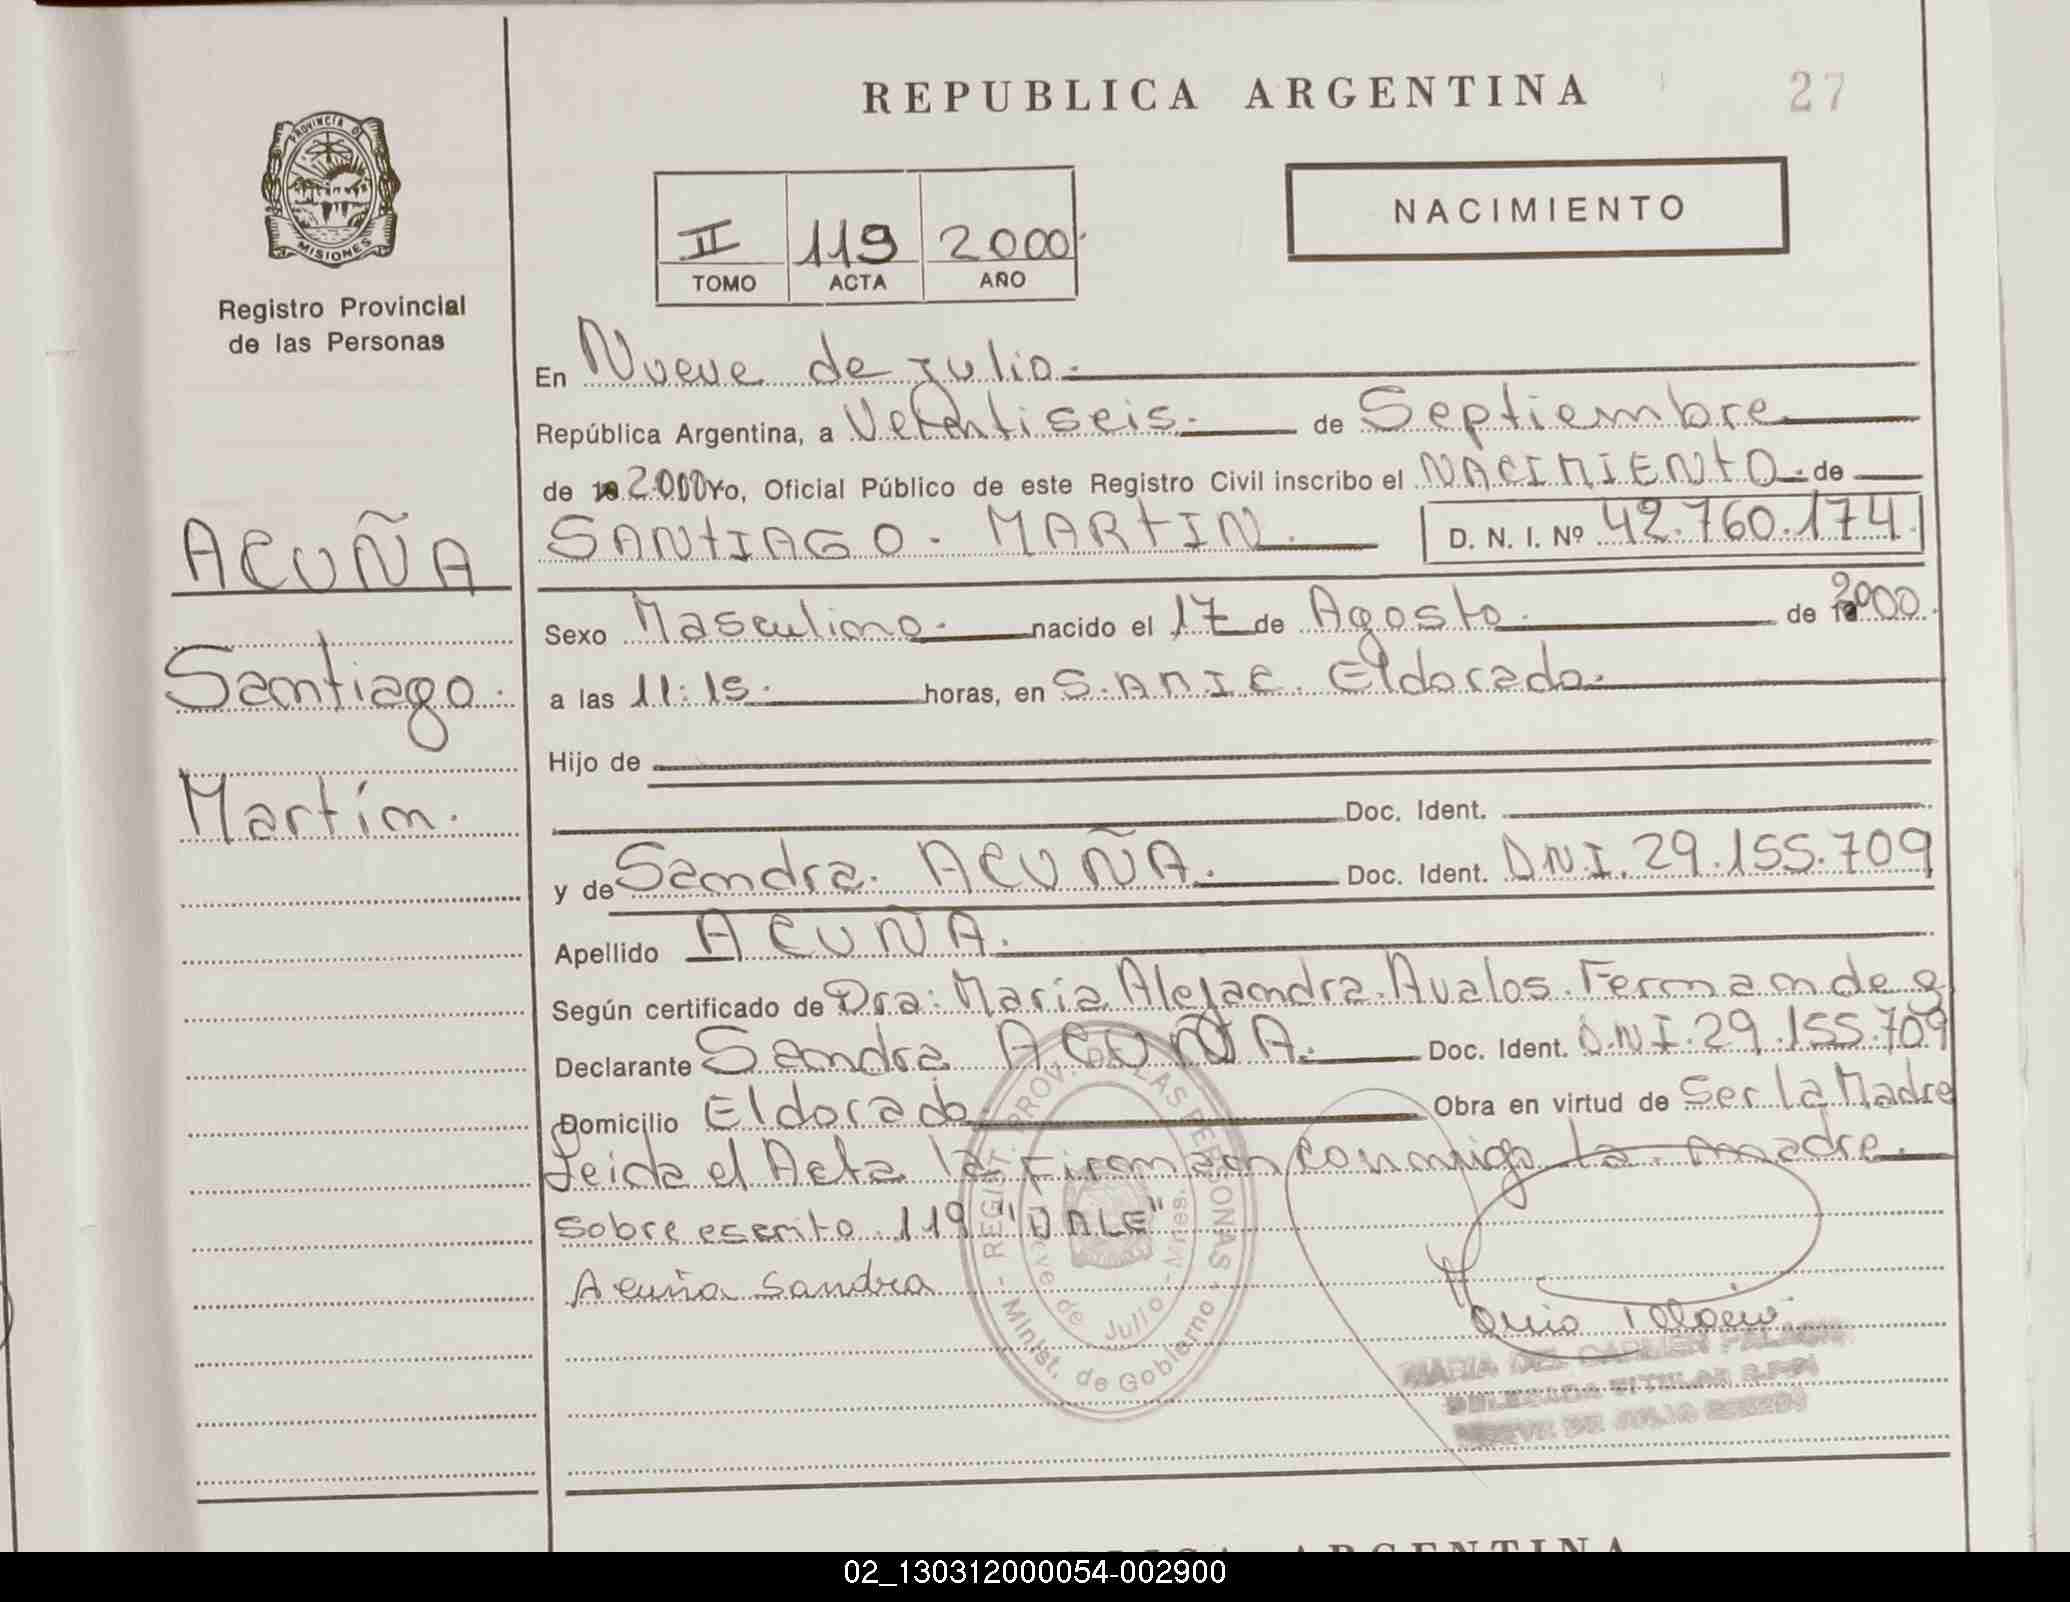 REPUBLICA ARGENTINA
27
PROVINCIA D
MISIONES
Registro Provincial
de las Personas
II 119 2000
TOMO ACTA AÑO
NACIMIENTO
ACUÑA
Santiago.
Martín.
En Nueve de Julio.
República Argentina, a Veintiseis. de Septiembre
de 19 2.000 Yo, Oficial Público de este Registro Civil inscribo el NACIMIENTO. de
SANTIAGO. MARTIN. D. N. I. Nº 42.760.174.
Sexo Masculino. nacido el 17 de Agosto. de 19 2000.
a las 11:15. horas, en S.AMIC. Eldorado.
Hijo de
Doc. Ident.
y de Sandra. ACUÑA. Doc. Ident. DNI. 29.155.709
Apellido ACUÑA.
Según certificado de Dra: María Alejandra. Avalos. Fernandez
Declarante Sandra ACUÑA. Doc. Ident. D.N.I. 29.155.709
Domicilio Eldorado Obra en virtud de Ser la Madre
Leida el Acta la Firman conmigo la madre.
Sobre escrito. 119 "VALE"
Acuña Sandra
REGIST. PROV. DE LAS PERSONAS - Minist. de Gobierno -
Nueve de Julio - Mnes.
MARIA DEL CARMEN
DELEGADA TITULAR
NUEVE DE JULIO
ARGENTINA
02_130312000054-002900